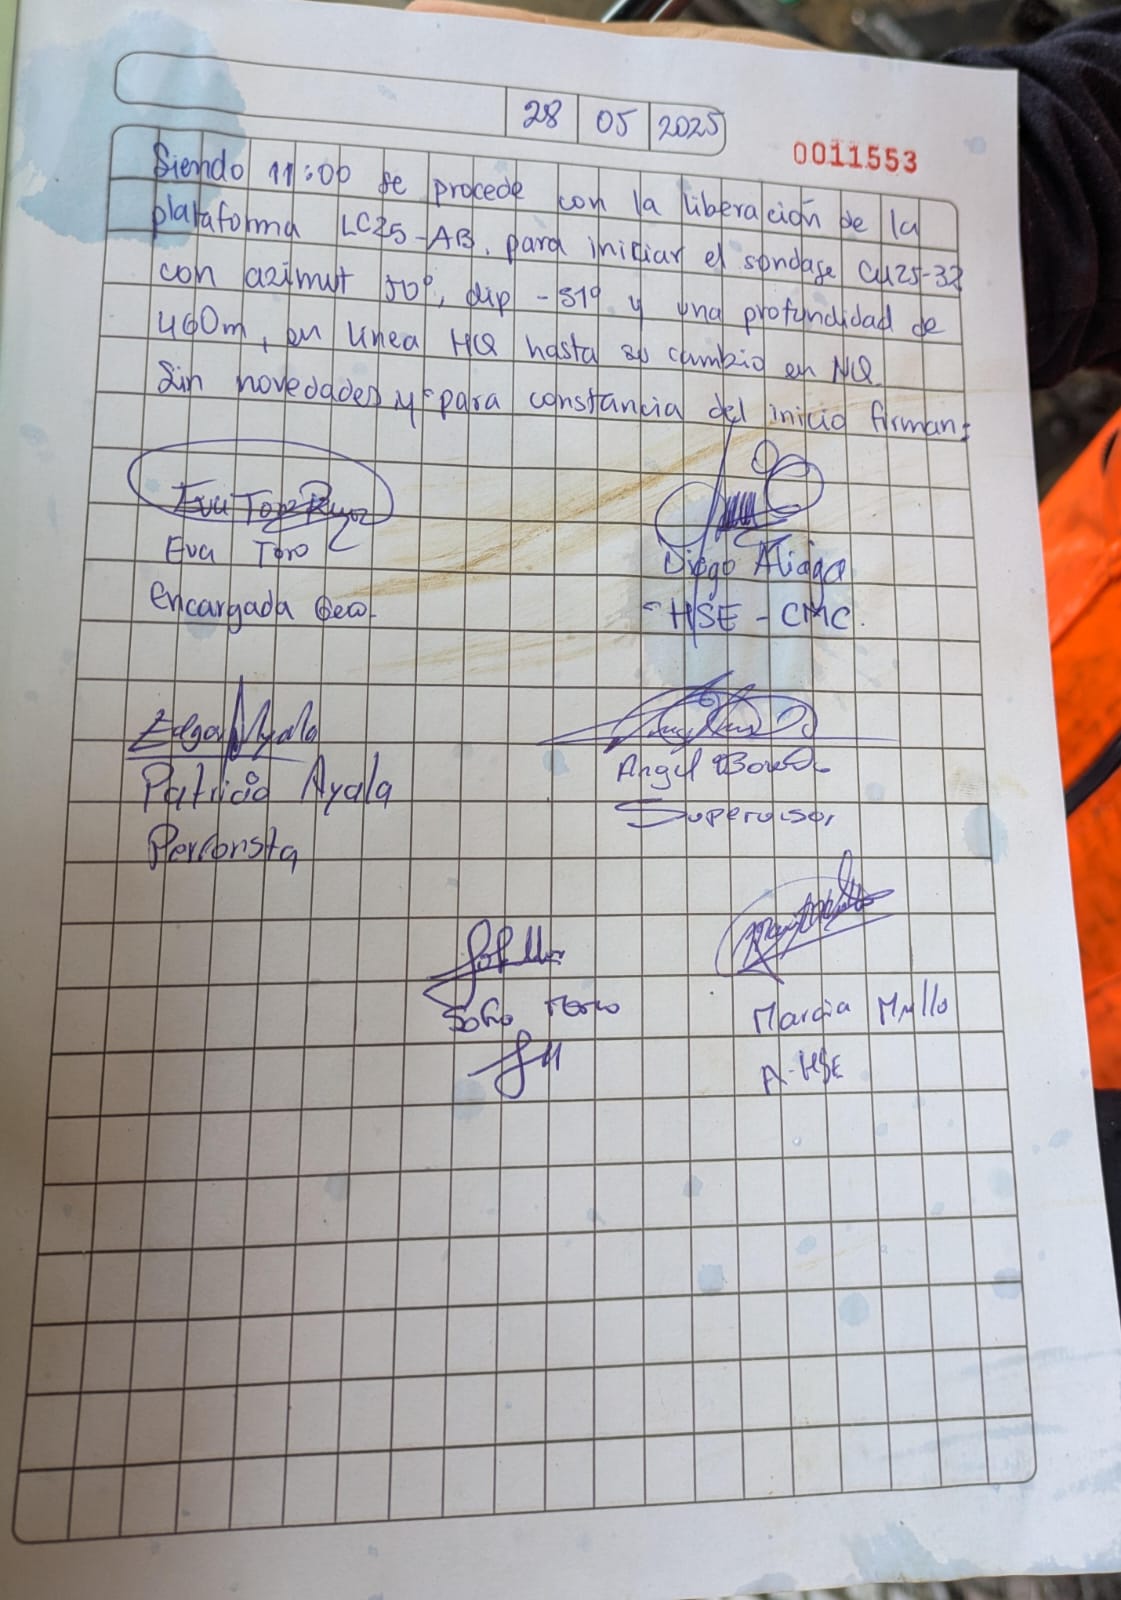 28 05 2025
0011553
Siendo 11:00 se procede con la liberación de la
plataforma LC25-AB. para iniciar el sondaje CU25-32
con azimut 50°, dip -51° y una profundidad de
460m, en linea HQ hasta su cambio en NQ
Sin novedades y para constancia del inicio firman:
Eva Toro
Diego Aliaga
encargada Geo.
HSE - CMC.
Edgar Ayala
Patricio Ayala
Angel
Supervisor
Perforista
Marcia Mullo
A-HSE